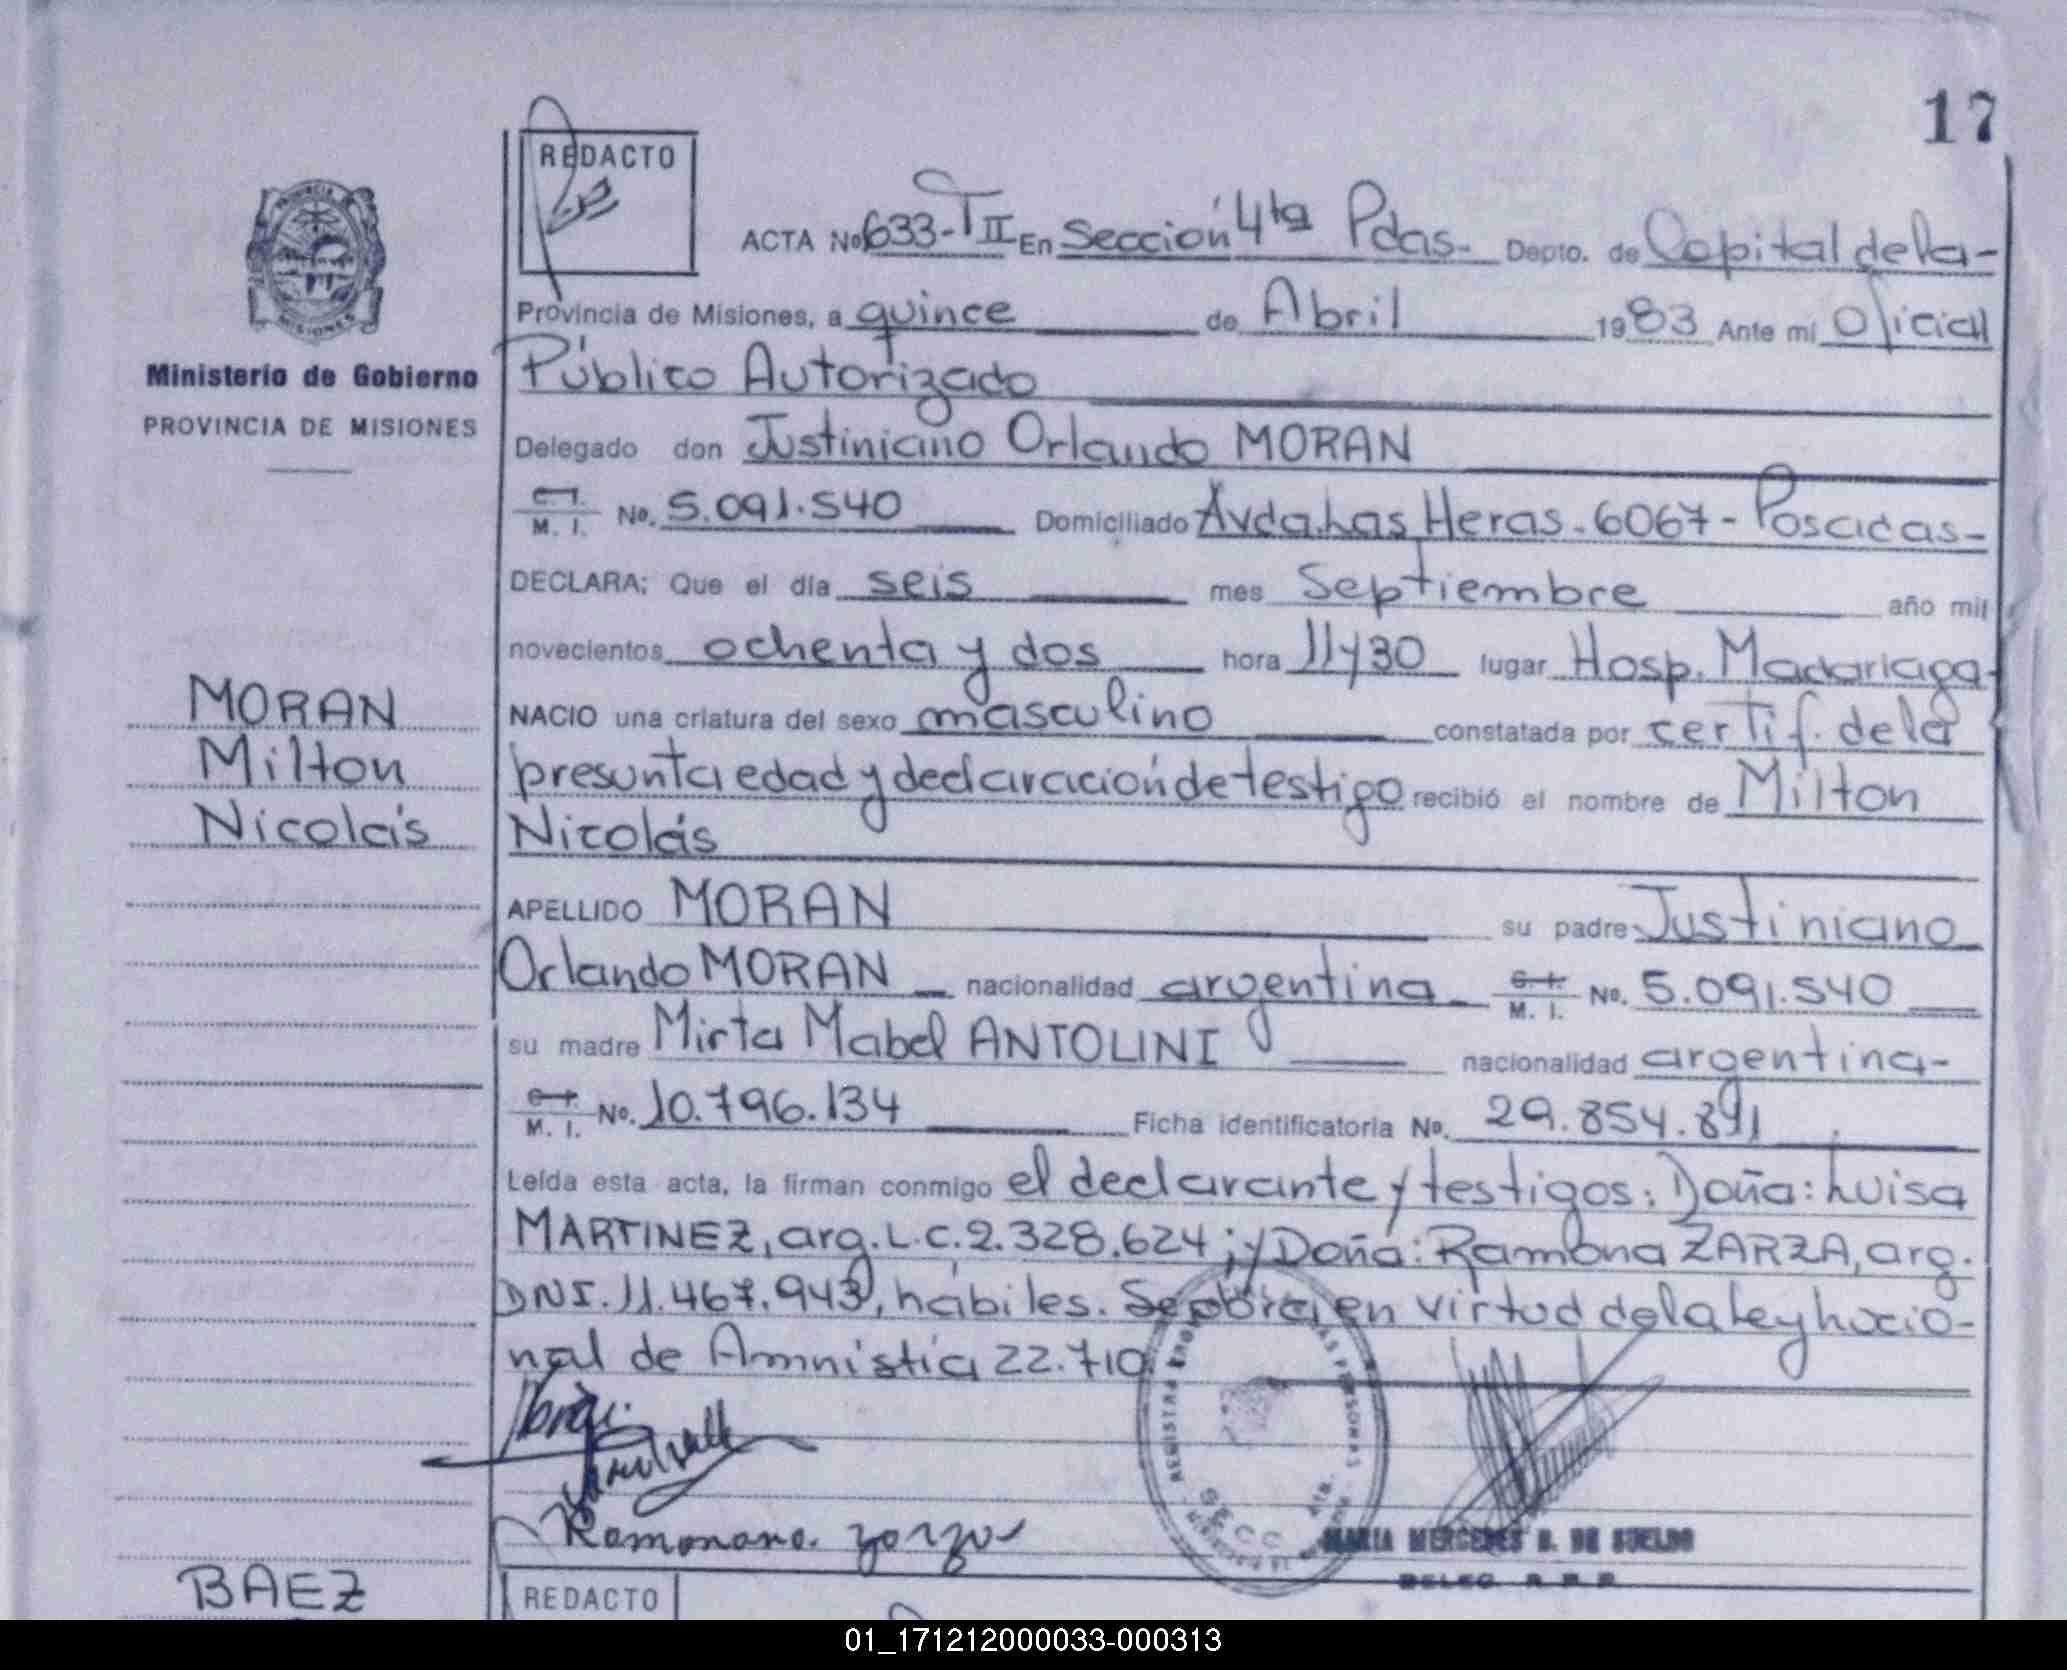 17
REDACTO
ACTA No 633-T II En Sección 4ta Pdas- Depto. de Capital de la-
Provincia de Misiones, a quince de Abril 1983 Ante mí Oficial
Público Autorizado
Delegado don Justiniano Orlando MORAN
C.I. M. I. No. 5.091.540 Domiciliado Avda. Las Heras-6067-Posadas-
DECLARA: Que el día seis mes Septiembre año mil
novecientos ochenta y dos hora 11y30 lugar Hosp. Madariaga-
NACIO una criatura del sexo masculino constatada por certif. de la
presunta edad y declaración de testigo recibió el nombre de Milton
Nicolás
APELLIDO MORAN su padre Justiniano
Orlando MORAN nacionalidad argentina C.I. M. I. No. 5.091.540
su madre Mirta Mabel ANTOLINI nacionalidad argentina-
C.I. M. I. No. 10.796.134 Ficha identificatoria No. 29.854.891
Leída esta acta, la firman conmigo el declarante y testigos: Doña: Luisa
MARTINEZ, arg. L.C. 2.328.624; y Doña: Ramona ZARZA, arg.
DNI. 11.467.943, hábiles. Se obra en virtud de la Ley Nacio-
nal de Amnistía 22.710
PROVINCIA
MISIONES
Ministerio de Gobierno
PROVINCIA DE MISIONES
MORAN
Milton
Nicolás
SECC. 4ta.
MARIA MERCEDES B. DE SUELDO
DELEG. R. P. P.
BAEZ
REDACTO
01_171212000033-000313